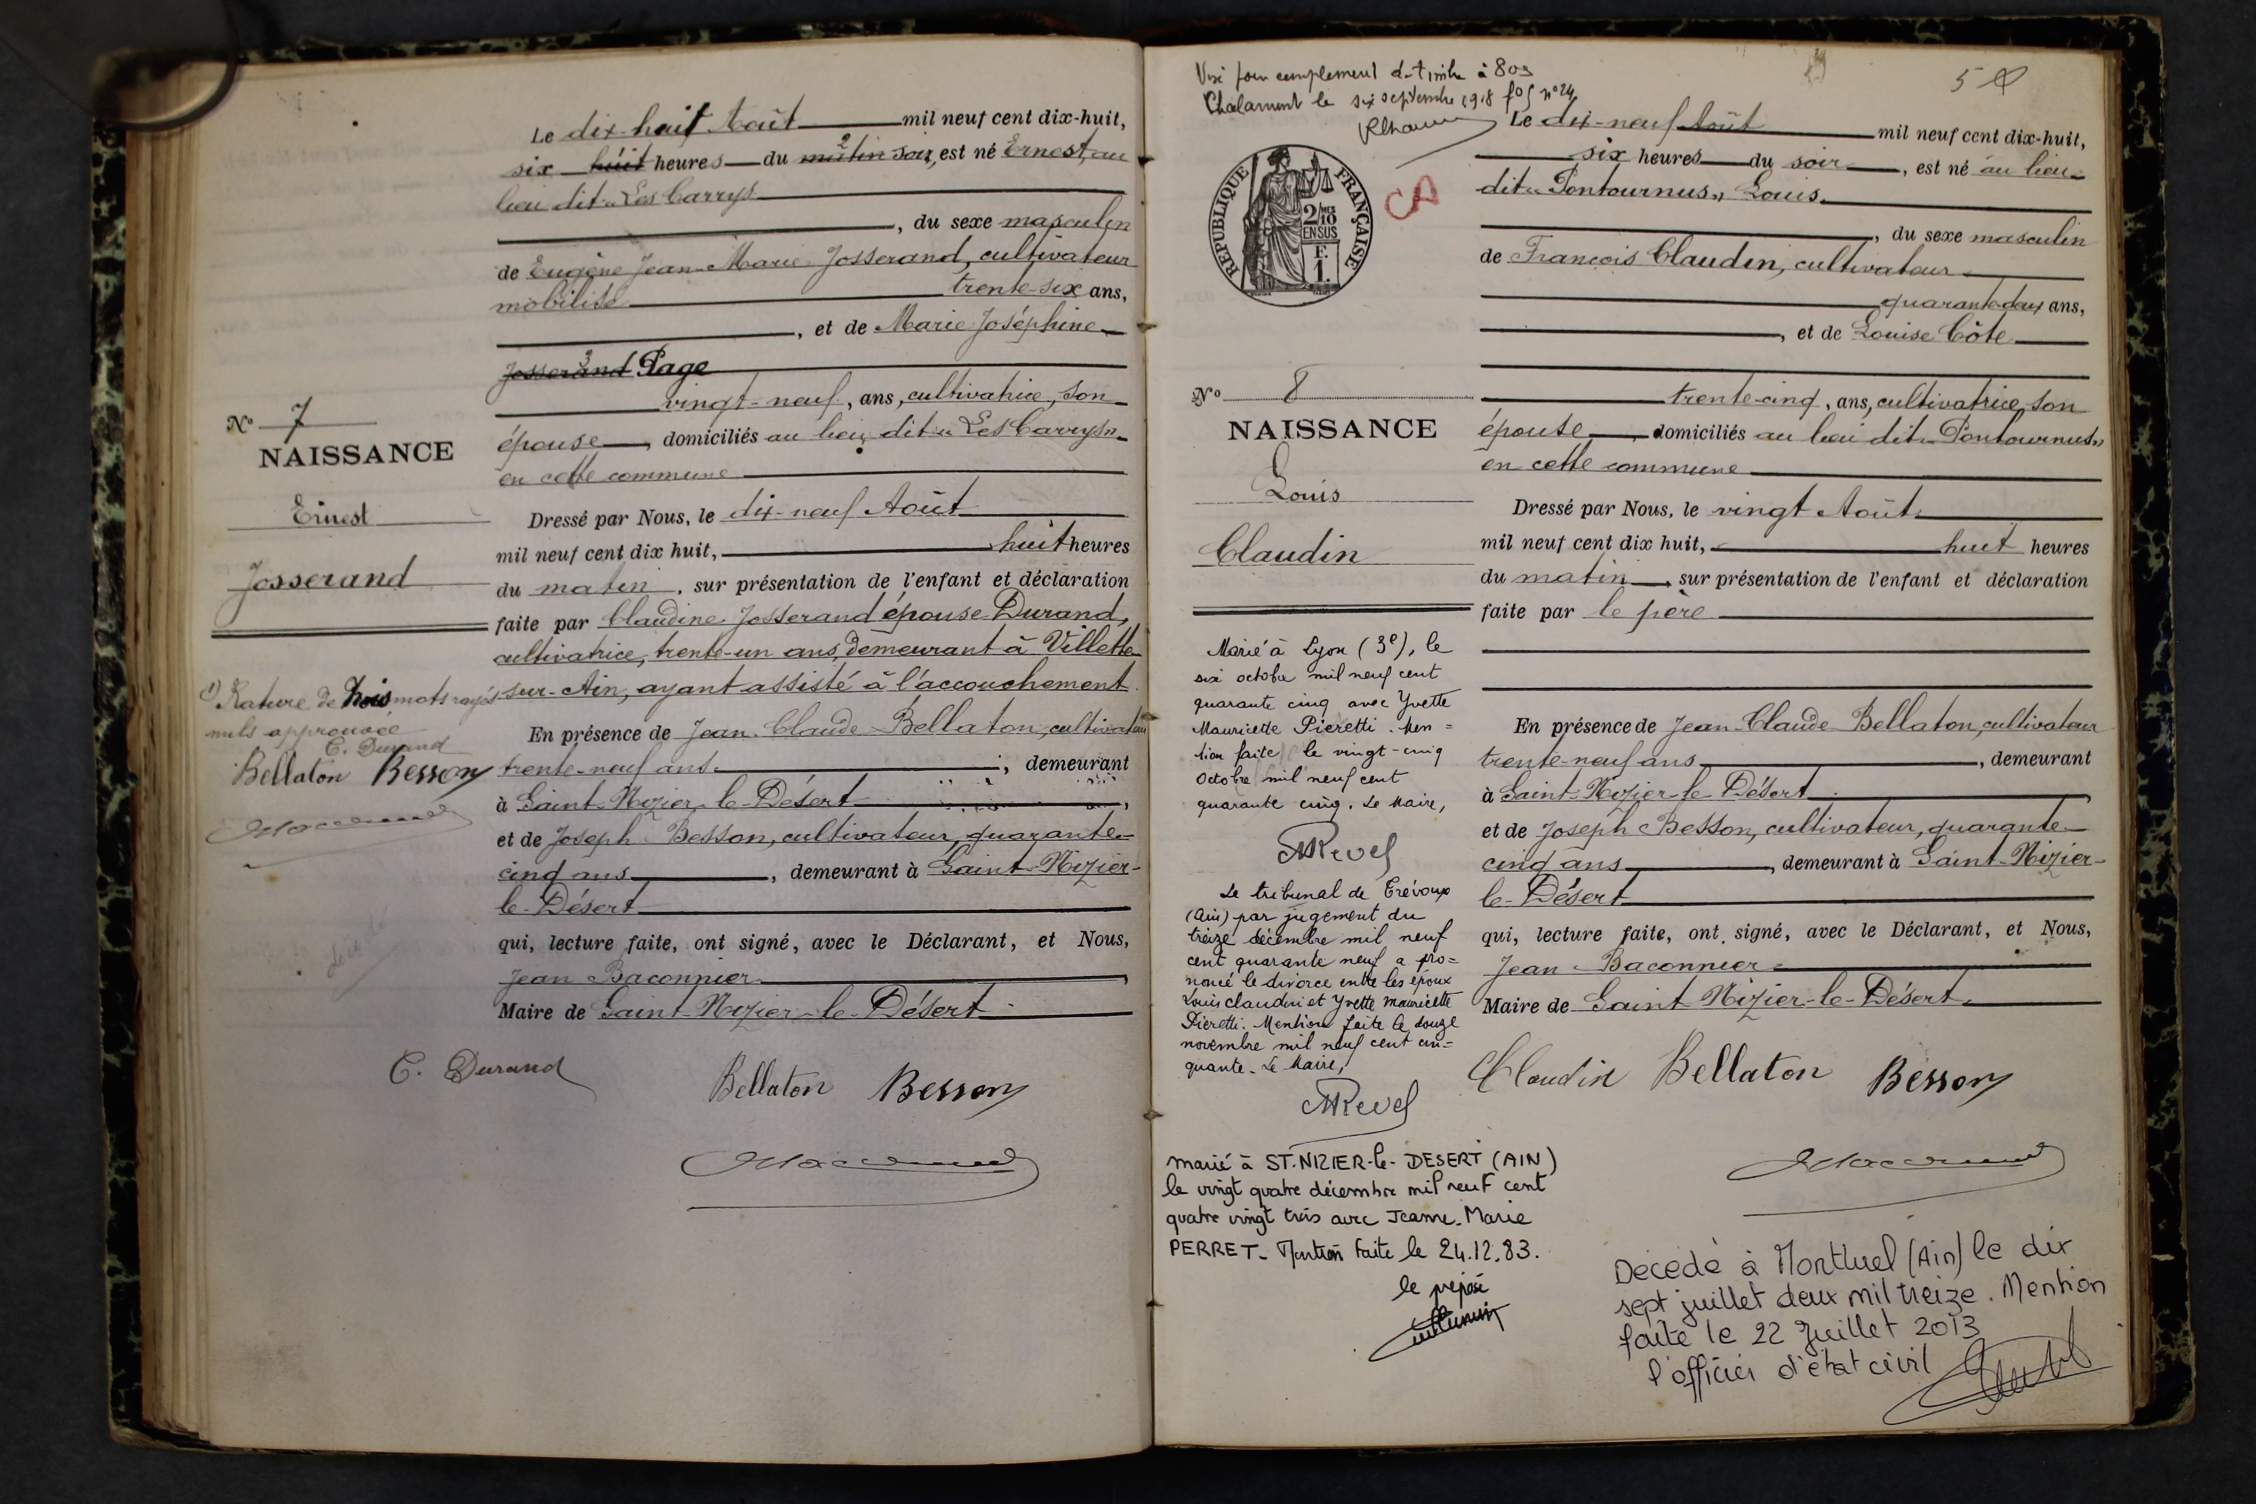 Le dix-huit Août mil neuf cent dix-huit,
six huit heures du matin soir, est né Ernest, au
lieu dit « Les Carrys
, du sexe masculin
de Eugène Jean-Marie Josserand, cultivateur
mobilisé trente-six ans,
, et de Marie Joséphine
Josserand Page
vingt-neuf, ans, cultivatrice, son
épouse, domiciliés au lieu dit « Les Carrys »
en cette commune
Nº 7
NAISSANCE
Ernest
Josserand
Dressé par Nous, le dix-neuf Août
mil neuf cent dix huit, huit heures
du matin, sur présentation de l'enfant et déclaration
faite par Claudine Josserand épouse Durand,
cultivatrice, trente-un ans, demeurant à Villette
sur-Ain, ayant assisté à l'accouchement.
En présence de Jean-Claude Bellaton, cultivateur
trente-neuf ans, demeurant
à Saint-Nizier-le-Désert,
et de Joseph Besson, cultivateur, quarante-
cinq ans, demeurant à Saint-Nizier-
le-Désert
qui, lecture faite, ont signé, avec le Déclarant, et Nous,
Jean Baconnier,
Maire de Saint-Nizier-le-Désert
(1) Rature de trois mots rayés
nuls approuvée
C. Durand
Bellaton Besson
C. Durand
Bellaton Besson
Visé pour complément de timbre à
Chalamont le six septembre 1918 nº 24
5
RÉPUBLIQUE FRANÇAISE
2/10
EN SUS
E.
1.
Le dix-neuf Août mil neuf cent dix-huit,
six heures du soir, est né au lieu
dit « Pontournus » Louis
, du sexe masculin
de François Claudin, cultivateur
quarante-deux ans,
, et de Louise Côte
trente-cinq, ans, cultivatrice son
épouse, domiciliés au lieu dit « Pontournus »
en cette commune
Nº 8
NAISSANCE
Louis
Claudin
Dressé par Nous, le vingt Août
mil neuf cent dix huit, huit heures
du matin, sur présentation de l'enfant et déclaration
faite par le père
En présence de Jean-Claude Bellaton, cultivateur
trente-neuf ans, demeurant
à Saint-Nizier-le-Désert
et de Joseph Besson, cultivateur, quarante-
cinq ans, demeurant à Saint-Nizier-
le-Désert
qui, lecture faite, ont signé, avec le Déclarant, et Nous,
Jean Baconnier
Maire de Saint Nizier-le-Désert.
Claudin Bellaton Besson
Marié à Lyon (3e), le
six octobre mil neuf cent
quarante cinq avec Yvette
Mauricette Pieretti. Men=
tion faite le vingt-cinq
Octobre mil neuf cent
quarante cinq. Le Maire,
Revel
Le tribunal de Trévoux
(Ain) par jugement du
treize décembre mil neuf
cent quarante neuf a pro=
noncé le divorce entre les époux
Louis Claudin et Yvette Mauricette
Pieretti. Mention faite le douze
novembre mil neuf cent cin=
quante. Le Maire,
Revel
marié à ST. NIZIER-le-DESERT (AIN)
le vingt quatre décembre mil neuf cent
quatre vingt trois avec Jeanne-Marie
PERRET. Mention faite le 24.12.83.
le préposé
Décédé à Montluel (Ain) le dix
sept juillet deux mil treize. Mention
faite le 22 Juillet 2013
l'officier d'état civil